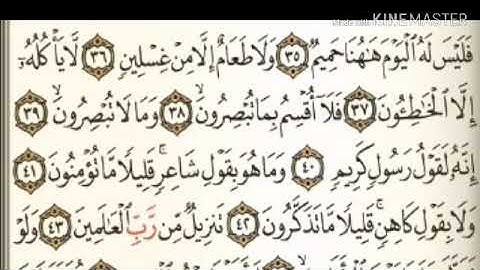 KINEMASTER
فَلَيْسَ لَهُ ٱلْيَوْمَ هَٰهُنَا حَمِيمٌ ٣٥ وَلَا طَعَامٌ إِلَّا مِنْ غِسْلِينٍ ٣٦ لَّا يَأْكُلُهُۥٓ
إِلَّا ٱلْخَٰطِـُٔونَ ٣٧ فَلَآ أُقْسِمُ بِمَا تُبْصِرُونَ ٣٨ وَمَا لَا تُبْصِرُونَ ٣٩
إِنَّهُۥ لَقَوْلُ رَسُولٍ كَرِيمٍ ٤٠ وَمَا هُوَ بِقَوْلِ شَاعِرٍ ۚ قَلِيلًا مَّا تُؤْمِنُونَ ٤١
وَلَا بِقَوْلِ كَاهِنٍ ۚ قَلِيلًا مَّا تَذَكَّرُونَ ٤٢ تَنزِيلٌ مِّن رَّبِّ ٱلْعَٰلَمِينَ ٤٣ وَلَوْ